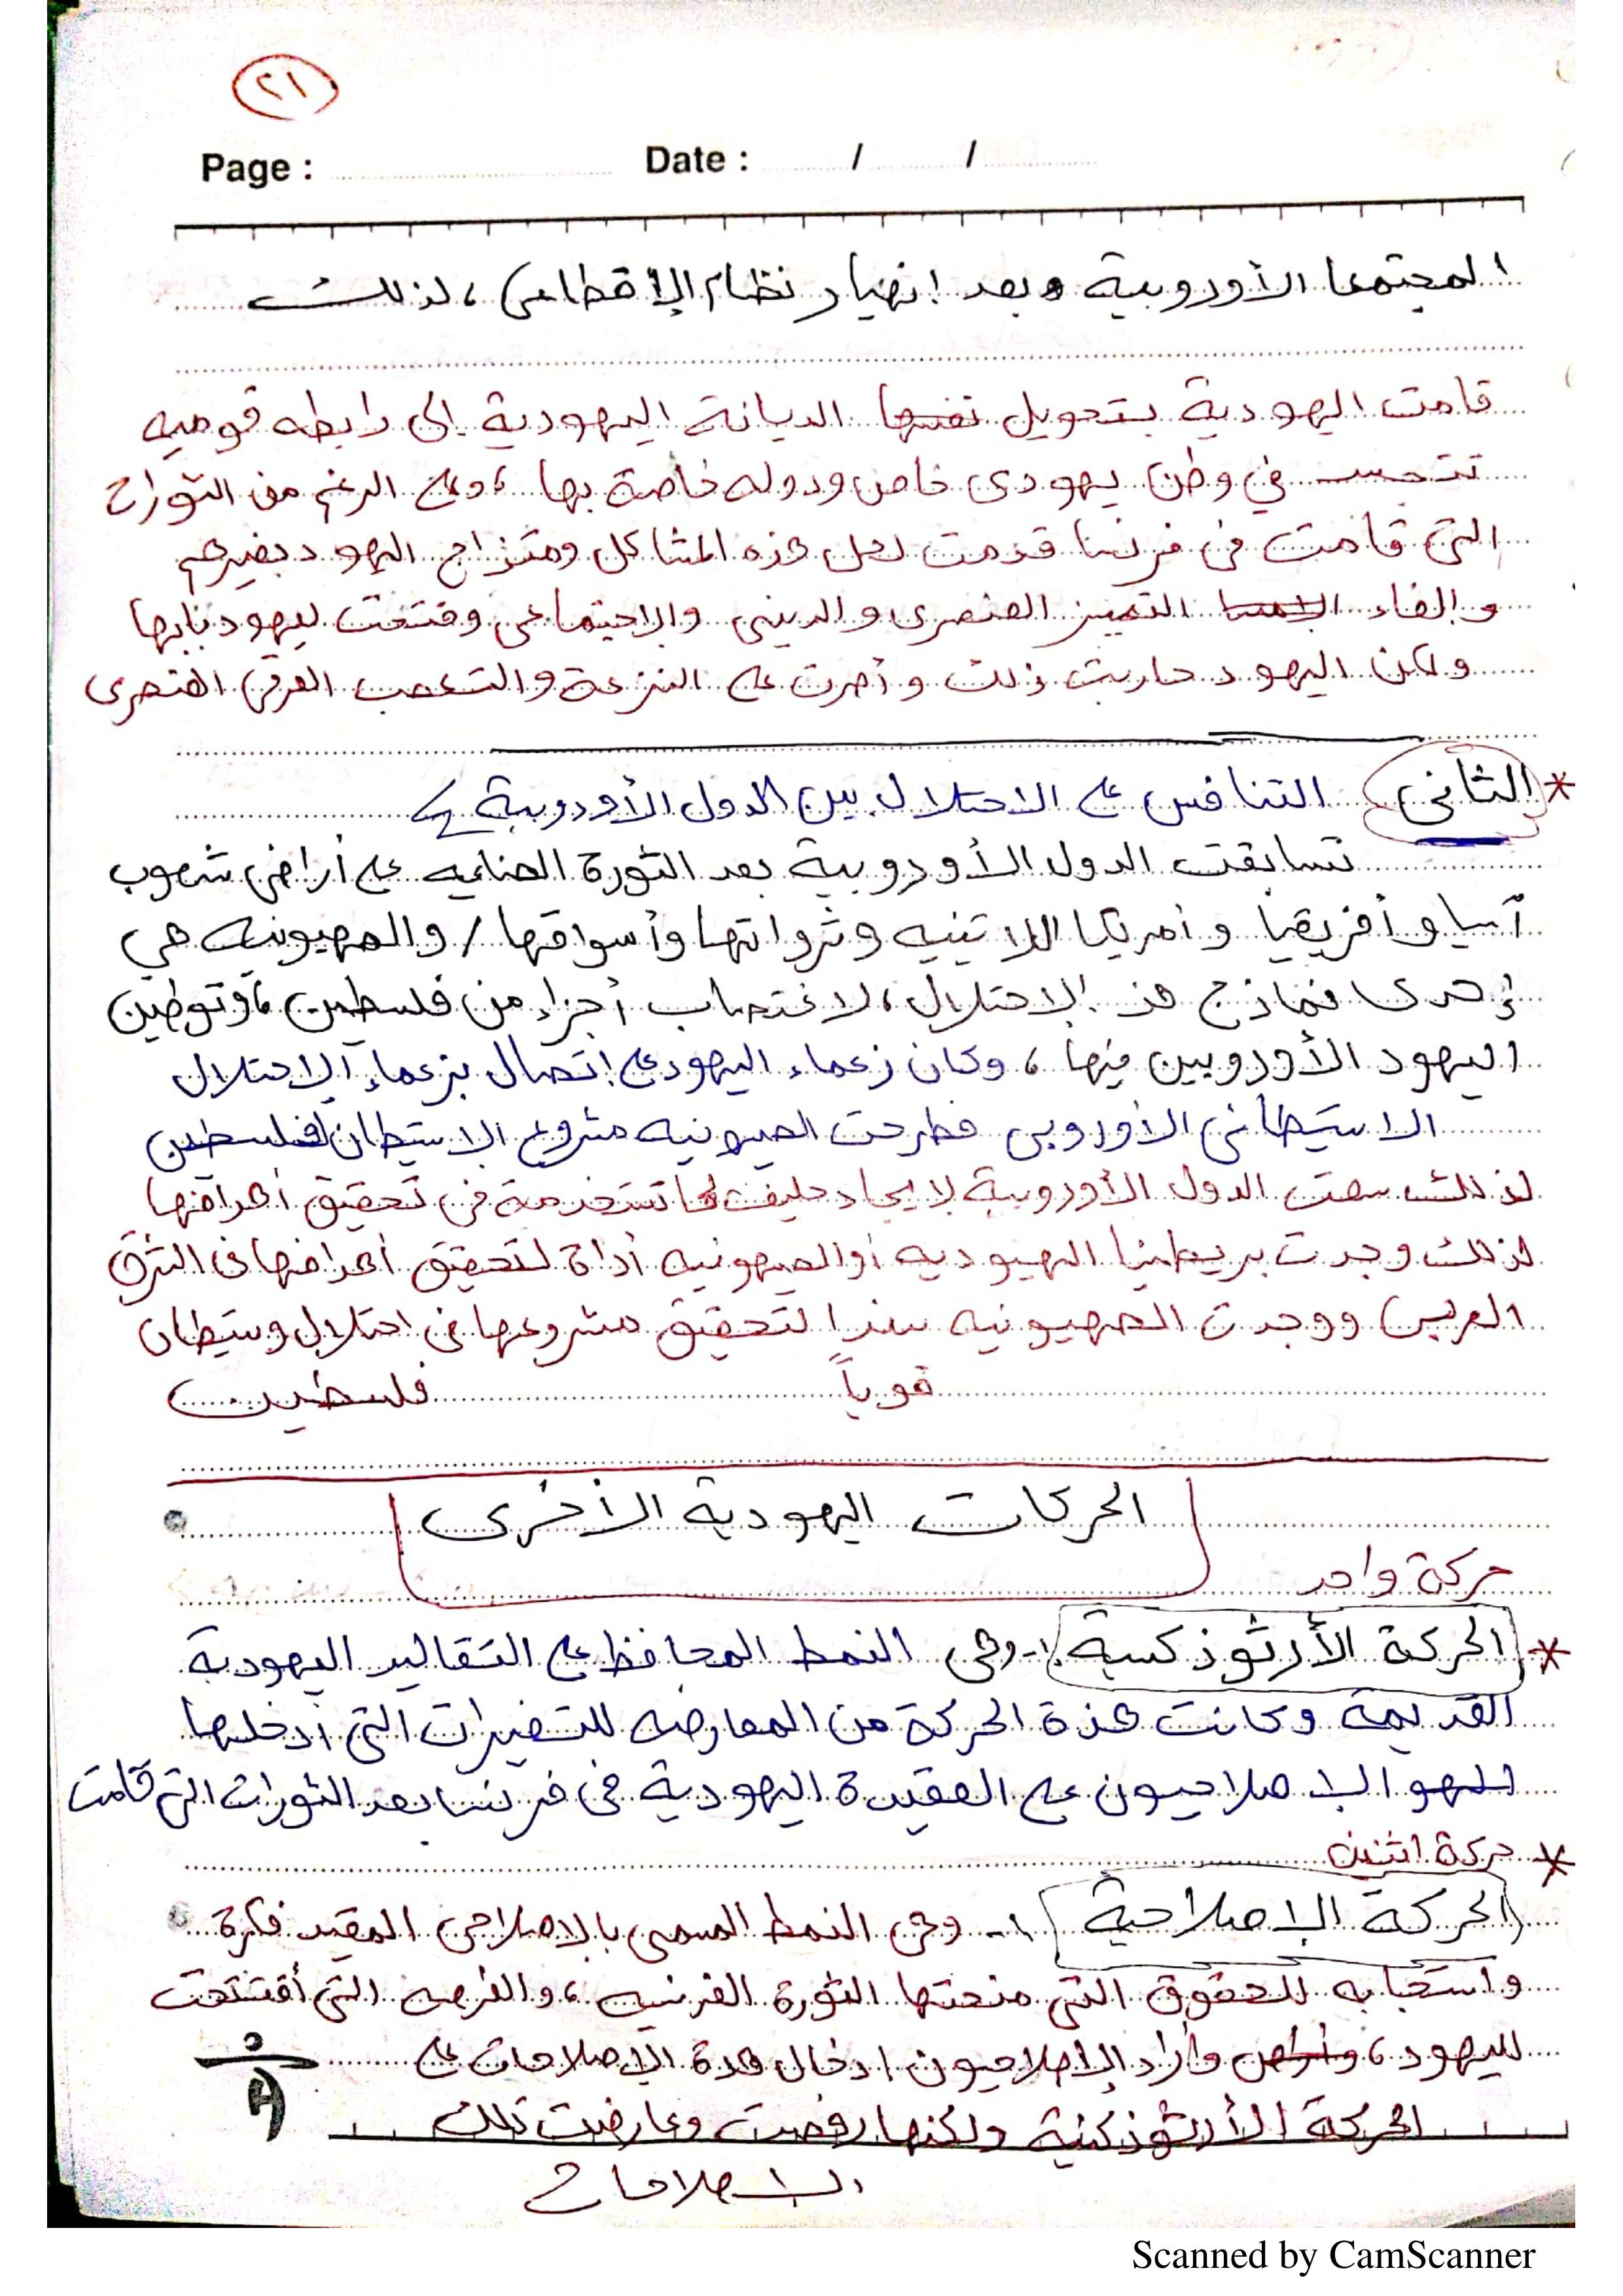 ٢١
Page : Date : / /
المجتمعا الأوروبية وبعد انهيار نظام الإقطاعي ، لذلك
قامت اليهودية بتحويل نفسها الديانة اليهودية إلى رابطه قوميه
تتجسد في وطن يهودي خاص ودوله خاصة بها ، وعلى الرغم من الثورات
التي قامت في فرنسا قدمت لحل هذه المشاكل ومتزاج اليهود بغيرهم
وإلغاء التميز العنصري والديني والاجتماعي وفتحت ليهود بابها
ولكن اليهود حاربت ذلك وأصرت على النزعة والتعصب العرقي العنصري
* الثاني التنافس على الاحتلال بين الدول الأوروبية
تسابقت الدول الأوروبية بعد الثورة الصناعيه على أراضي شعوب
آسيا وأفريقيا وأمريكا اللاتينيه وثرواتها وأسواقها / والصهيونيه هي
إحدى نماذج هذ الاحتلال ، لاغتصاب أجزاء من فلسطين ، وتوطين
اليهود الأوروبيين فيها ، وكان زعماء اليهود على إتصال بزعماء الاحتلال
الاستيطاني الأوروبي فطرحت الصهيونيه مشروع الاستيطان لفلسطين
لذلك سعت الدول الأوروبية لايجاد حليف لها تستخدمة في تحقيق أهدافها
لذلك وجدت بريطنيا اليهيوديه أو الصهونيه أداة لتحقيق أهدافها في الشرق
العربي ووجدت الصهيونيه سندا لتحقيق مشروعها في احتلال وستيطان
قوياً فلسطين
الحركات اليهودية الأخرى
حركة واحد
* الحركة الأرثوذكسية :- وهي النمط المحافظ على التقاليد اليهودية
القديمة وكانت هذة الحركة من المعارضه للتغيرات التي أدخلها
الاصلاحيون على العقيدة اليهودية في فرنسا بعد الثورات التي قامت
* حركة اثنين
الحركة الإصلاحية :- وهي النمط المسمى بالاصلاحي المقيد فكرة
واستجابه للحقوق التي منحتها الثورة الفرنسيه ، والفرصه التي أفتتحت
لليهود ، وأراد الإصلاحيون ادخال هذة الإصلاحات على
الحركة الأرثوذكسية ولكنها رفضت وعارضت تلك
الاصلاحات
Scanned by CamScanner